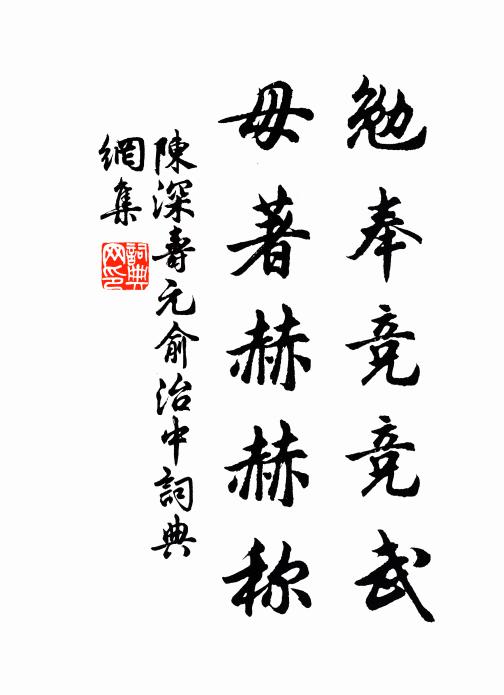 勉奉竞竞武
毋著赫赫称
陳深壽元俞治中詞典
網集
詞典
网印